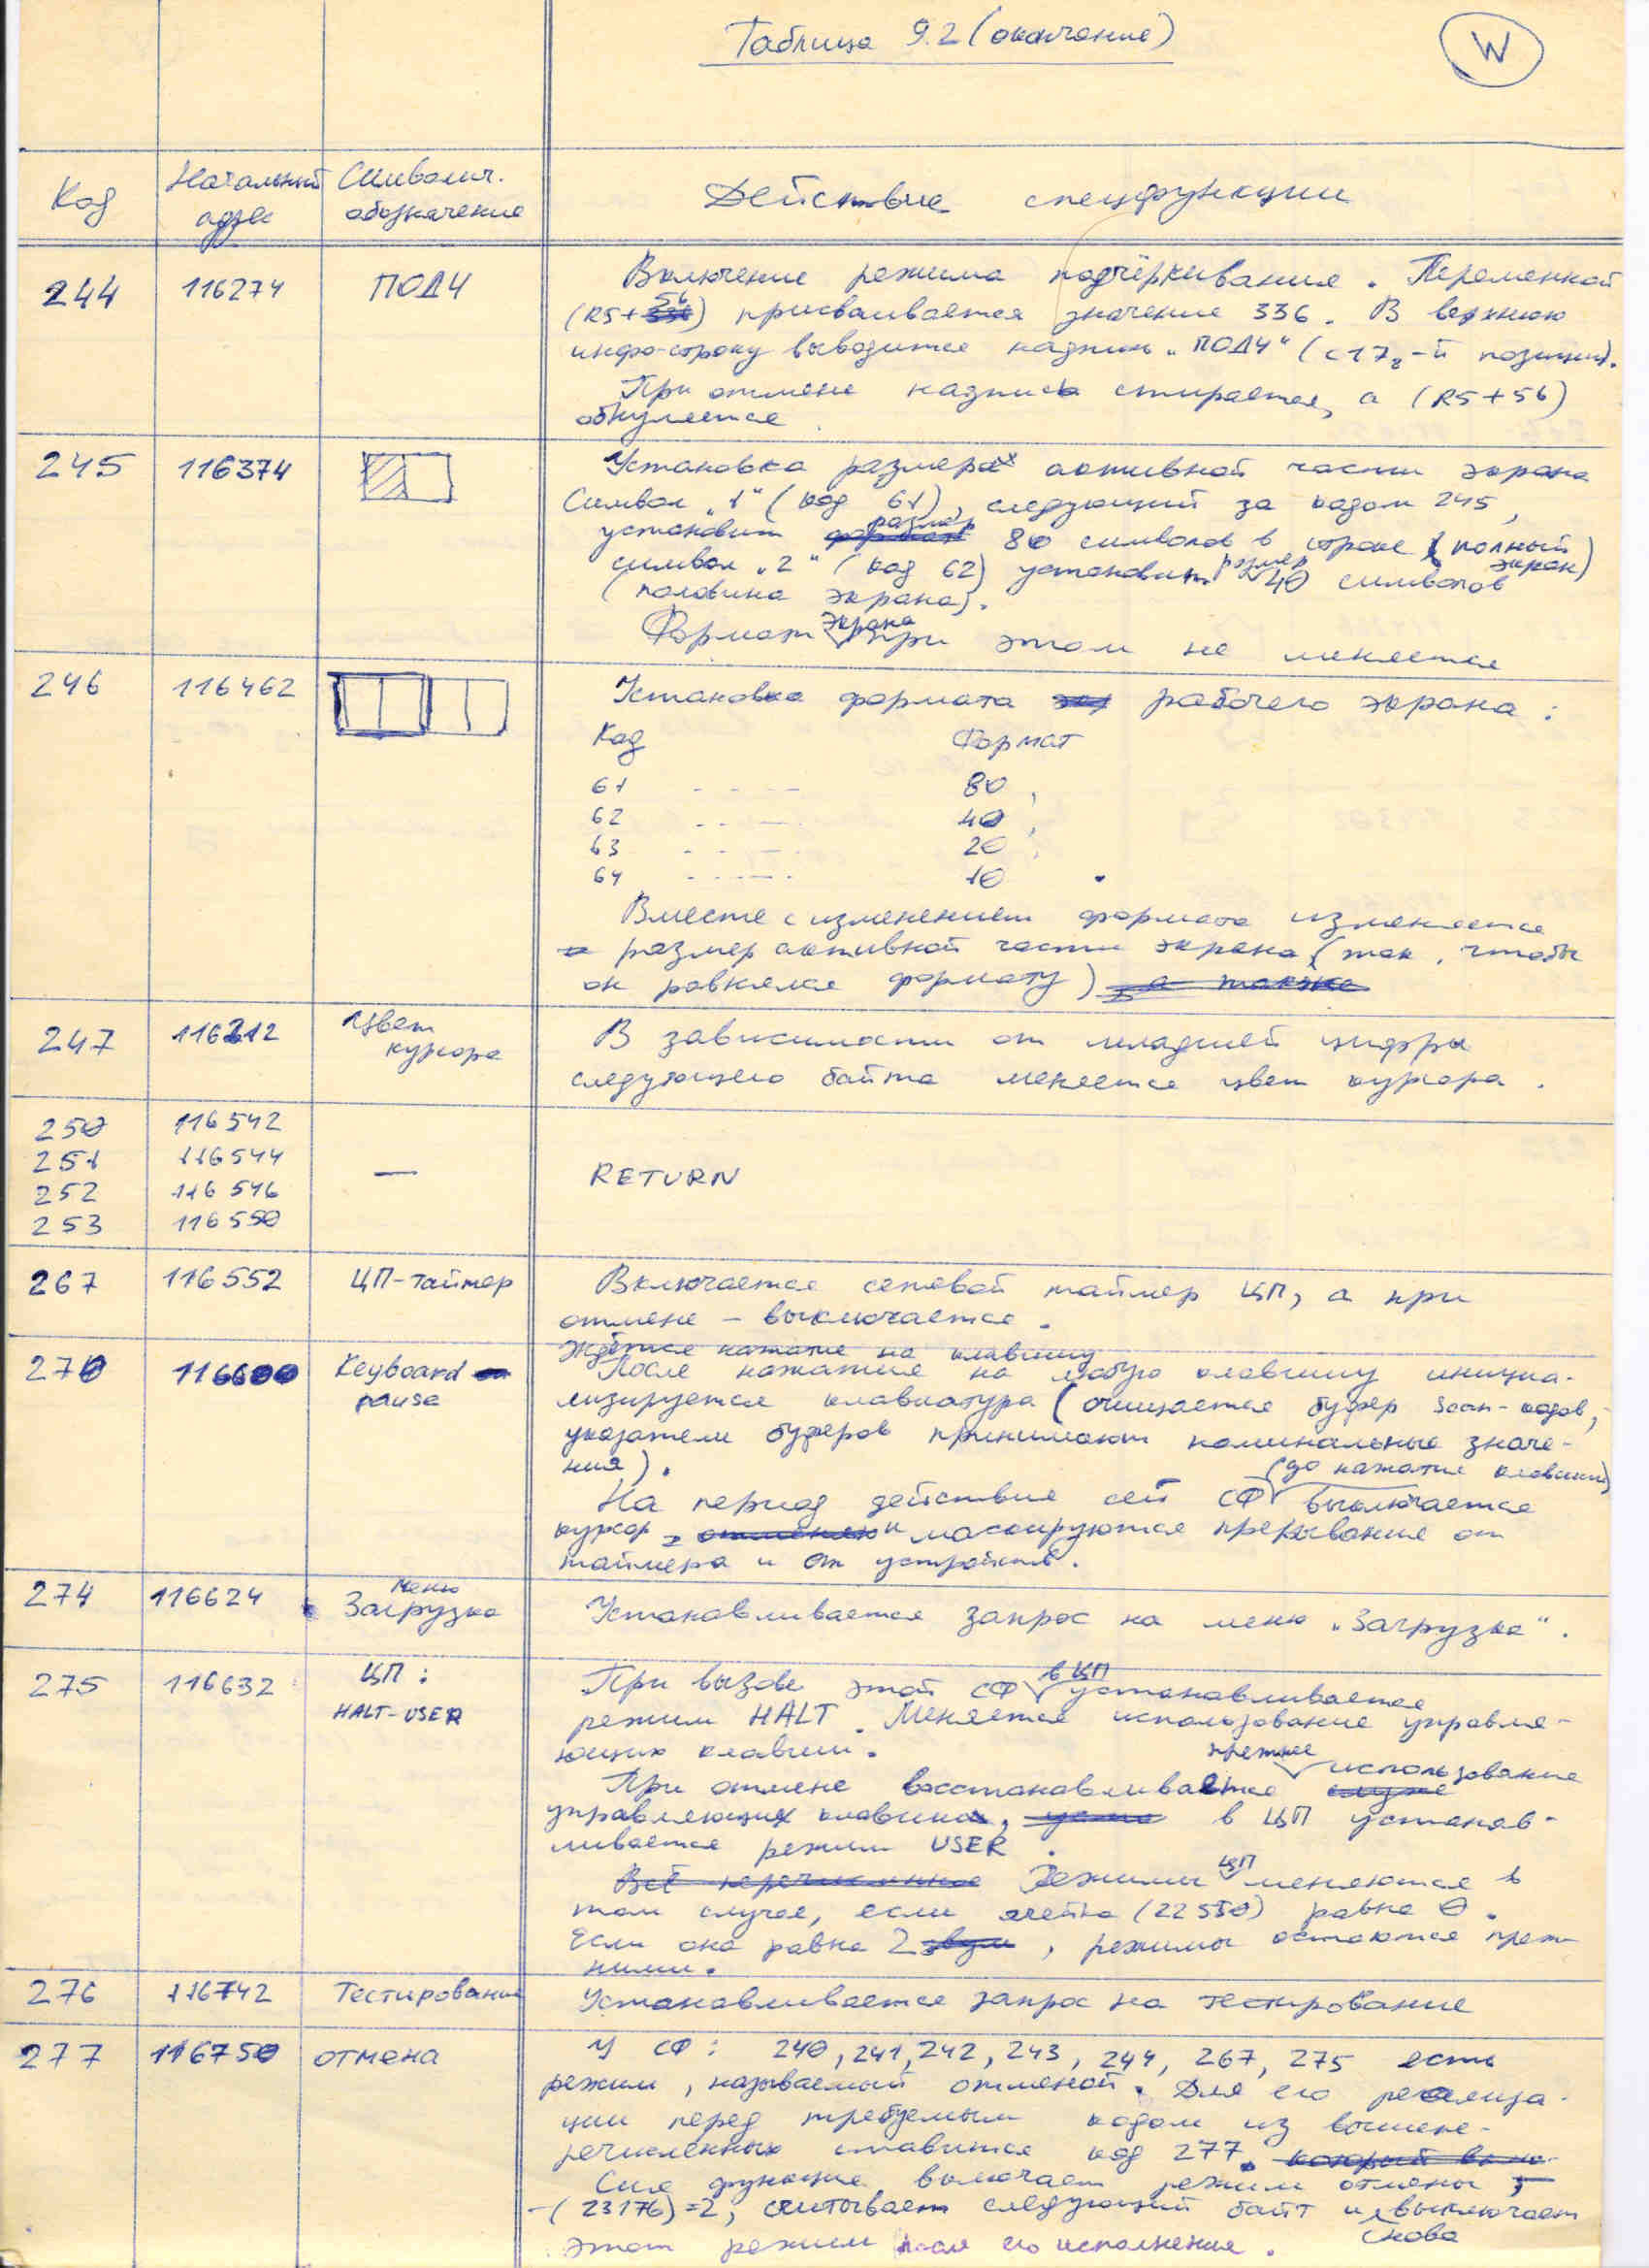 Таблица 9.2 (окончание)
W
Код
Начальный адрес
Символич. обозначение
Действие спецфункции
244 116274 ПОДЧ
Включение режима подчёркивания. Переменной
(R5+56) присваивается значение 336. В верхнюю
инфо-строку выводится надпись „ПОДЧ“ (с 17₈-й позиции).
При отмене надпись стирается, а (R5+56)
обнуляется.
245 116374
Установка размера активной части экрана
Символ „1“ (код 61), следующий за кодом 245,
установит размер 80 символов в строке (полный экран)
символ „2“ (код 62) установит размер 40 символов
(половина экрана).
Формат экрана при этом не меняется
246 116462
Установка формата рабочего экрана:
Код Формат
61 - - - - 80,
62 - - - - 40,
63 - - - - 20,
64 - - - - 10.
Вместе с изменением формата изменяется
размер активной части экрана (так, чтобы
он равнялся формату) , а также
247 116212 Цвет курсора
В зависимости от младшей цифры
следующего байта меняется цвет курсора.
250 116542
251 116544
252 116546
253 116550
— RETURN
267 116552 ЦП-таймер
Включается сетевой таймер ЦП, а при
отмене – выключается.
270 116600 Keyboard pause
Ждётся нажатие на клавишу
После нажатия на любую клавишу инициа-
лизируется клавиатура (очищается буфер scan-кодов,
указатели буферов принимают номинальные значе-
ния).
На период действия сей СФ (до нажатия клавиши) выключается
курсор и маскируются прерывания от
таймера и от устройств.
274 116624 меню Загрузка
Устанавливается запрос на меню „Загрузка“.
275 116632 ЦП: HALT-USER
При вызове этой СФ в ЦП устанавливается
режим HALT. Меняется использование управля-
ющих клавиш.
При отмене восстанавливается прежнее использование
управляющих клавиш, в ЦП устанав-
ливается режим USER.
Всё перечисленное Режимы ЦП меняются в
том случае, если ячейка (22550) равна 0.
Если она равна 2, режимы остаются преж-
ними.
276 116742 Тестирование
Устанавливается запрос на тестирование
277 116750 отмена
У СФ: 240, 241, 242, 243, 244, 267, 275 есть
режим, называемый отменой. Для его реализа-
ции перед требуемым кодом из вышепе-
речисленных ставится код 277. который вклю-
Сия функция включает режим отмены
-(23176)=2, считывает следующий байт и снова выключает
этот режим после его исполнения.